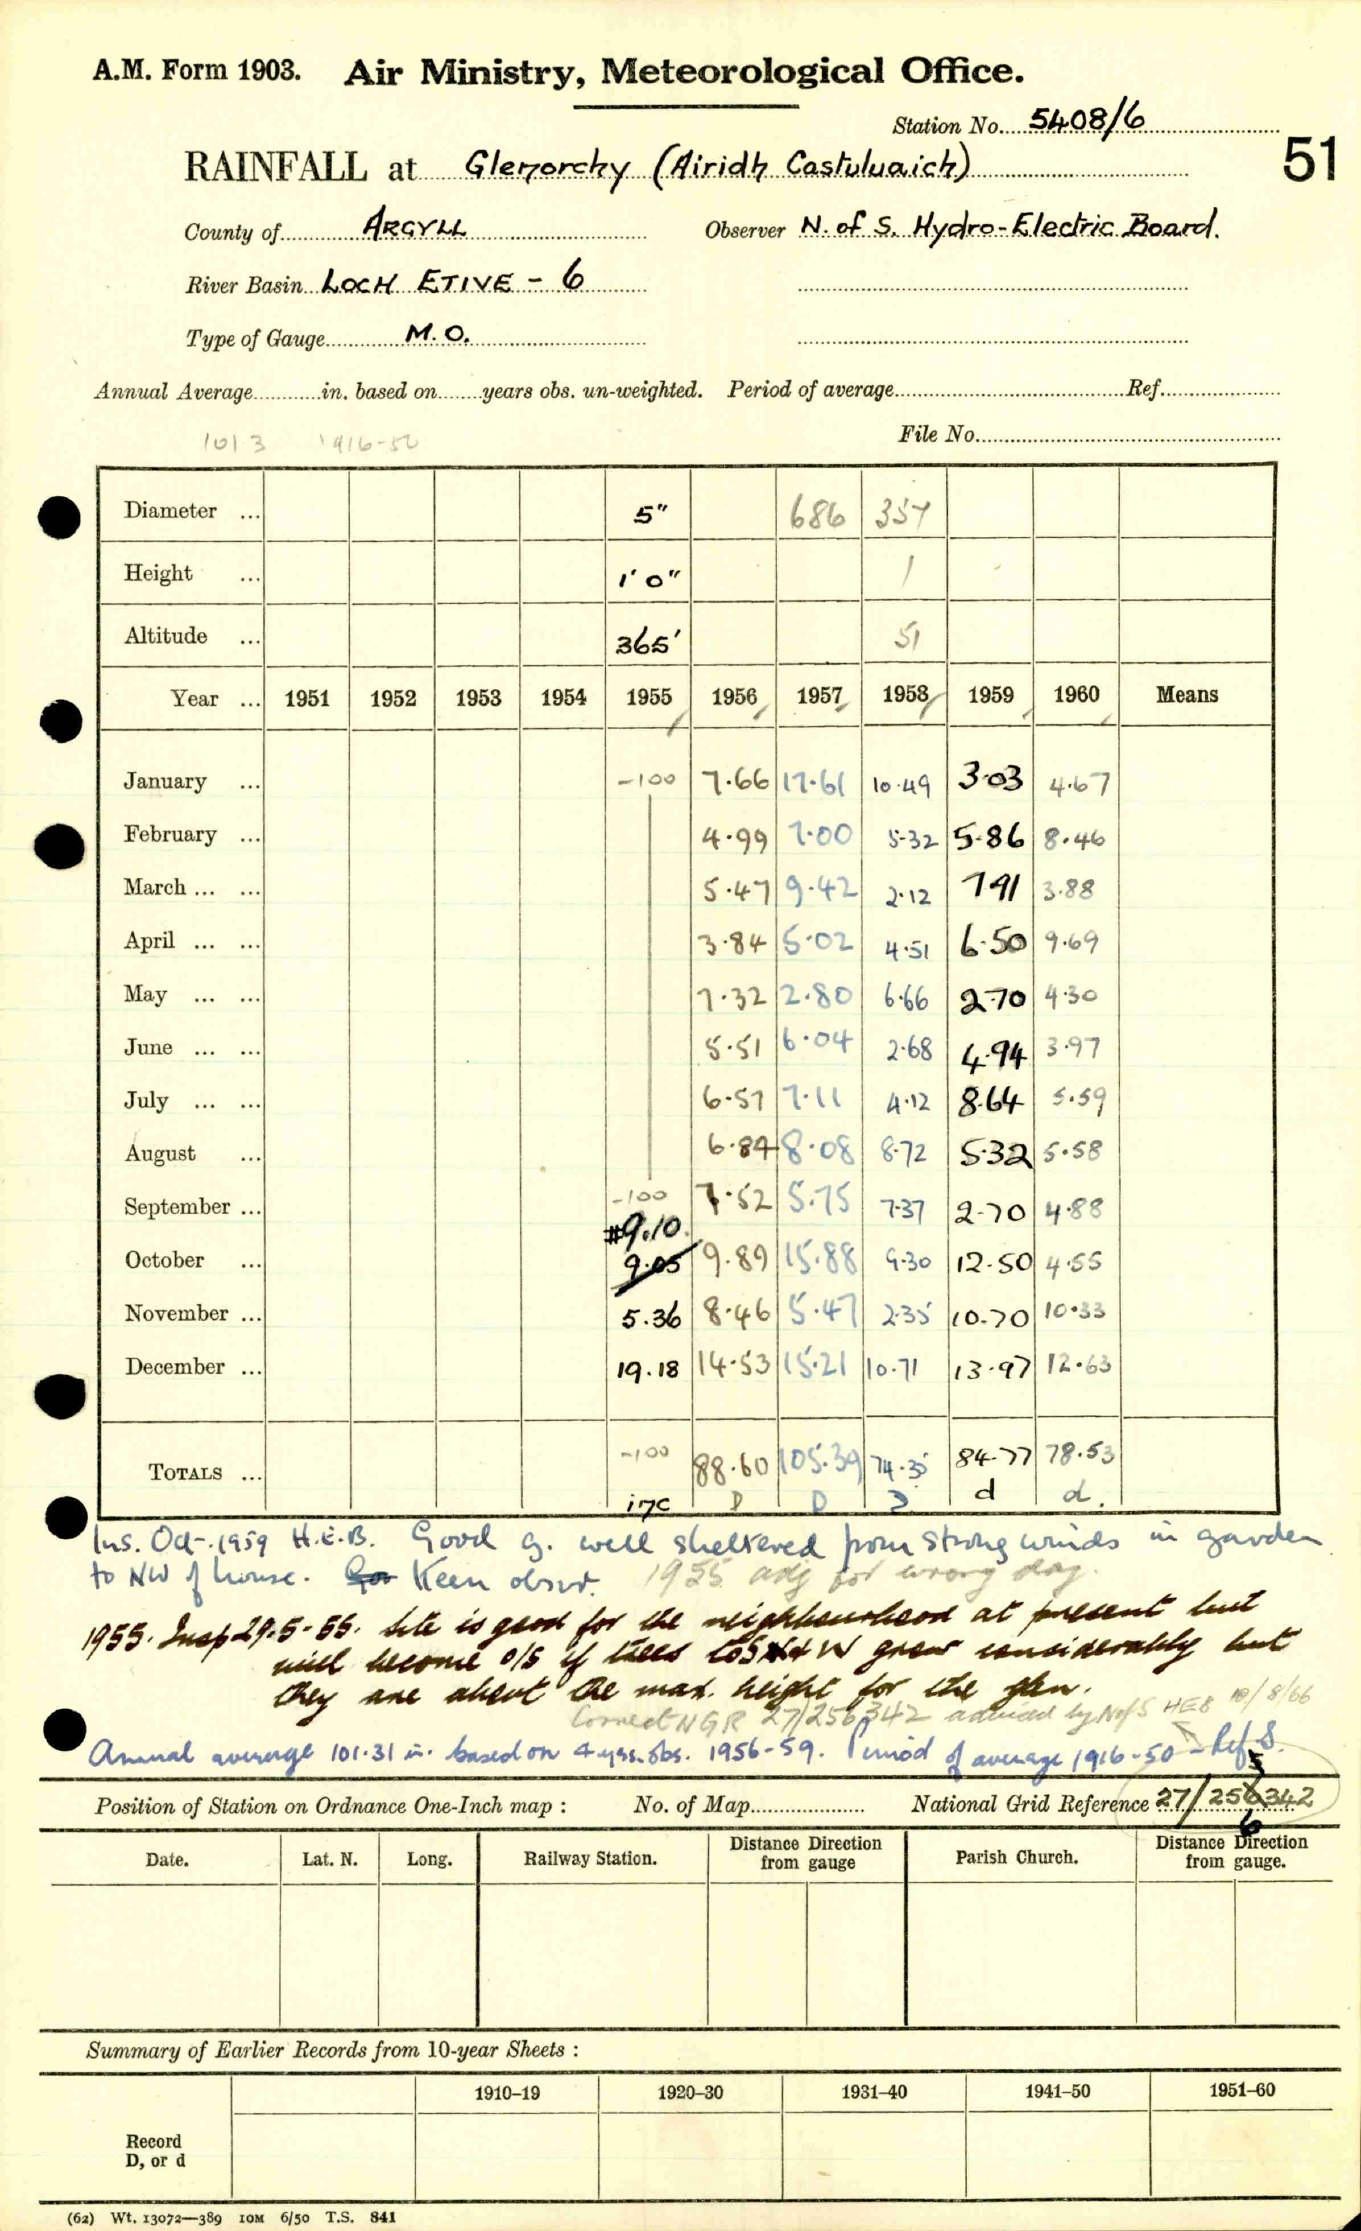 A.M. Form 1903. Air Ministry, Meteorological Office.
Station No. 5408/6
51
RAINFALL at Glenorchy (Airidh Castuluaich)
County of ARGYLL Observer N. of S. Hydro-Electric Board.
River Basin LOCH ETIVE - 6
Type of Gauge M.O.
Annual Average in. based on years obs. un-weighted. Period of average Ref.
1013 1916-50 File No.
Diameter ... 5" 686 357
Height ... 1' 0" 1
Altitude ... 365' 51
Year ... 1951 1952 1953 1954 1955 1956 1957 1958 1959 1960 Means
January ... -100 7.66 17.61 10.49 3.03 4.67
February ... 4.99 7.00 5.32 5.86 8.46
March ... ... 5.47 9.42 2.12 7.91 3.88
April ... ... 3.84 5.02 4.51 6.50 9.69
May ... ... 7.32 2.80 6.66 2.70 4.30
June ... ... 5.51 6.04 2.68 4.94 3.97
July ... ... 6.57 7.11 4.12 8.64 5.59
August ... 6.84 8.08 8.72 5.32 5.58
September ... -100 7.52 5.75 7.37 2.70 4.88
#9.10
October ... 9.05 9.89 15.88 9.30 12.50 4.55
November ... 5.36 8.46 5.47 2.35 10.70 10.33
December ... 19.18 14.53 15.21 10.71 13.97 12.63
TOTALS ... -100 88.60 105.39 74.35 84.77 78.53
inc D D D d d.
Ins. Oct. 1959 H.E.B. Good g. well sheltered from strong winds in garden
to NW of house. Keen obsvr. 1955 adj for wrong day.
1955. Insp 29.5.55. Site is good for the neighbourhood at present but
will become o/s if trees to S & W grow considerably but
they are about the max. height for the glen.
Correct NGR 27/256342 advised by N of S HEB 18/8/66
Annual average 101.31 in. based on 4 yrs. obs. 1956-59. Period of average 1916-50 - Ref S.
5
Position of Station on Ordnance One-Inch map : No. of Map National Grid Reference 27/256342
6
Date. Lat. N. Long. Railway Station. Distance Direction from gauge Parish Church. Distance Direction from gauge.
Summary of Earlier Records from 10-year Sheets :
1910–19 1920–30 1931–40 1941–50 1951–60
Record
D, or d
(62) Wt. 13072—389 10M 6/50 T.S. 841